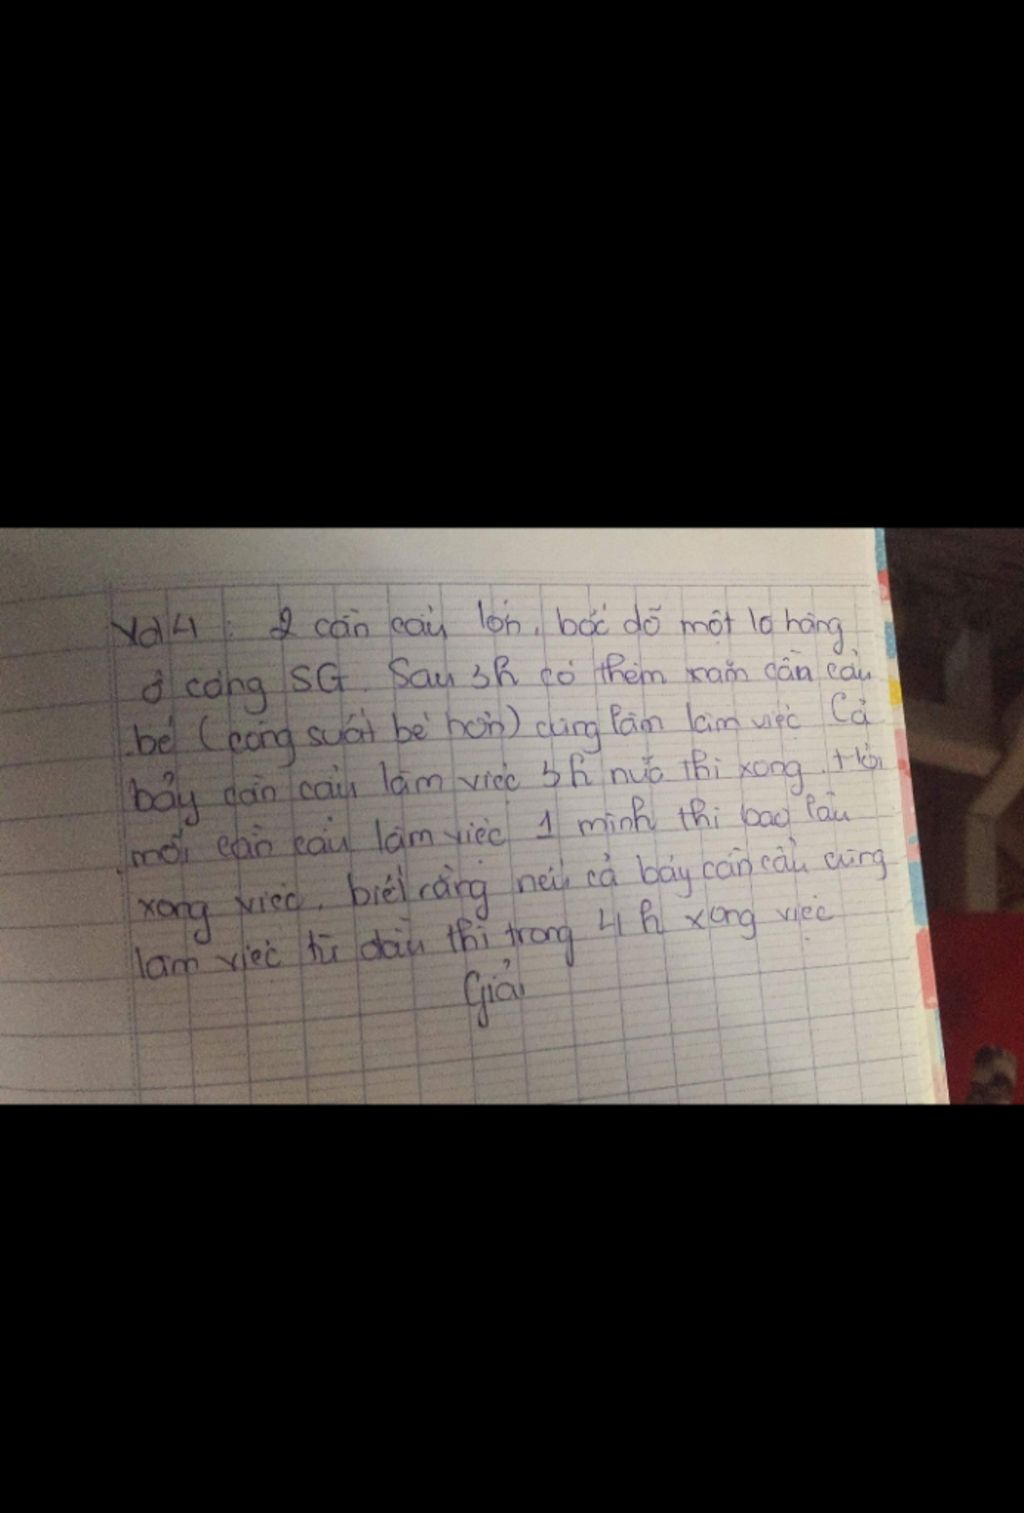 Vd4 : 2 cần cẩu lớn, bốc dỡ một lô hàng
ở cảng SG. Sau 3h có thêm năm cần cẩu
bé (công suất bé hơn) cùng làm việc Cả
bảy cần cẩu làm việc 3h nữa thì xong. Hỏi
mỗi cần cẩu làm việc 1 mình thì bao lâu
xong việc, biết rằng nếu cả bảy cần cẩu cùng
làm việc từ đầu thì trong 4h xong việc
Giải